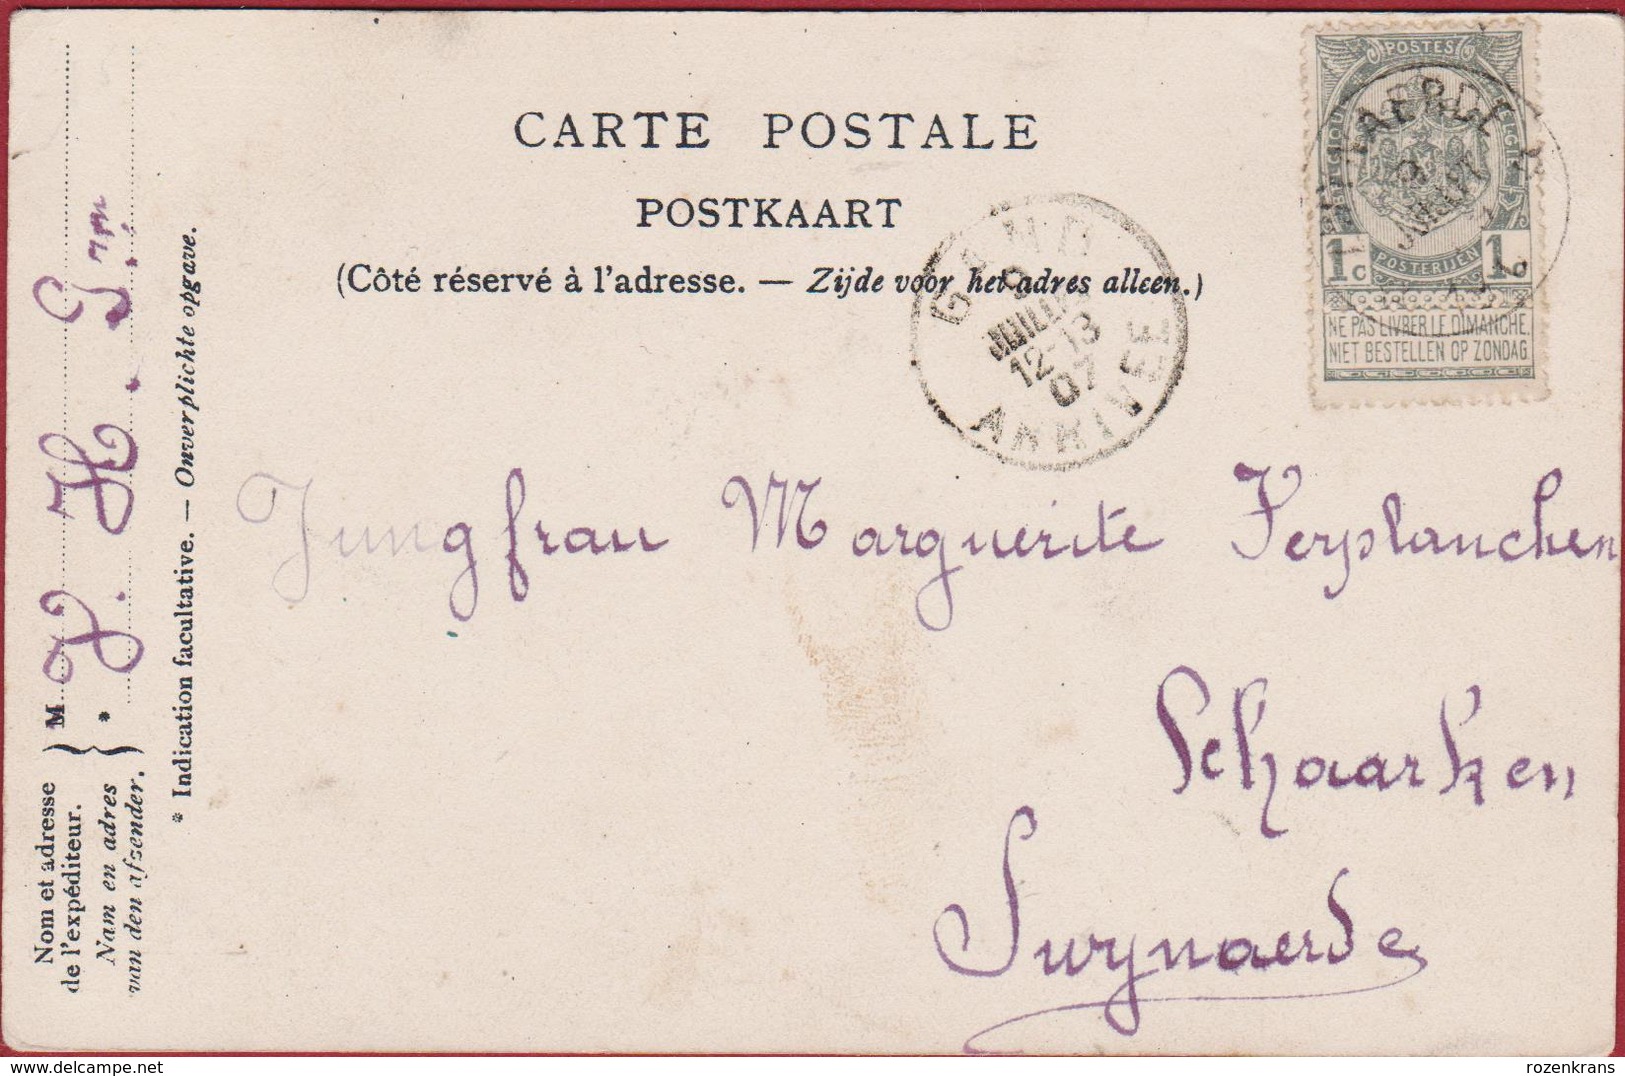 CARTE POSTALE
POSTKAART
(Côté réservé à l'adresse. — Zijde voor het adres alleen.)
POSTES
BELGIQUE
BELGIE
1c
POSTERIJEN
1c
NE PAS LIVRER LE DIMANCHE.
NIET BESTELLEN OP ZONDAG.
GAND
9
JUILLET
12-13
07
ARRIVEE
Jungfrau Marguerite Verplancken
Schaarken
Swynaerde
Nom et adresse
de l'expéditeur.
Nam en adres
van den afzender.
M
*
* Indication facultative. — Onverplichte opgave.
rozenkrans